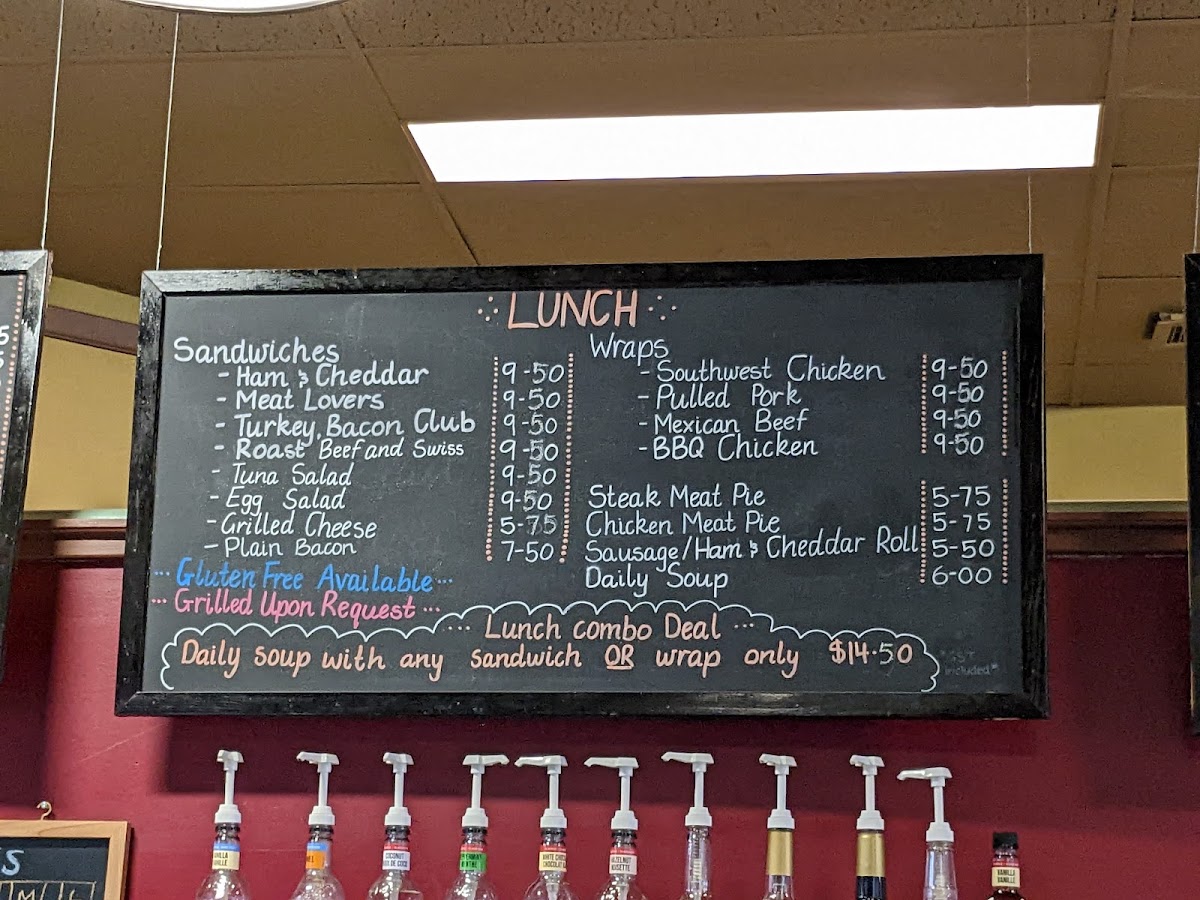 LUNCH
Sandwiches
- Ham & Cheddar 9-50
- Meat Lovers 9-50
- Turkey, Bacon Club 9-50
- Roast Beef and Swiss 9-50
- Tuna Salad 9-50
- Egg Salad 9-50
- Grilled Cheese 5-75
- Plain Bacon 7-50
... Gluten Free Available ...
... Grilled Upon Request ...
Wraps
- Southwest Chicken 9-50
- Pulled Pork 9-50
- Mexican Beef 9-50
- BBQ Chicken 9-50
Steak Meat Pie 5-75
Chicken Meat Pie 5-75
Sausage/Ham & Cheddar Roll 5-50
Daily Soup 6-00
... Lunch combo Deal ...
Daily soup with any sandwich OR wrap only $14.50
*GST
included*
5
S
M L
VANILLA
VANILLE
COCONUT
WHITE CHOCOLATE
HAZELNUT
NOISETTE
VANILLA
VANILLE